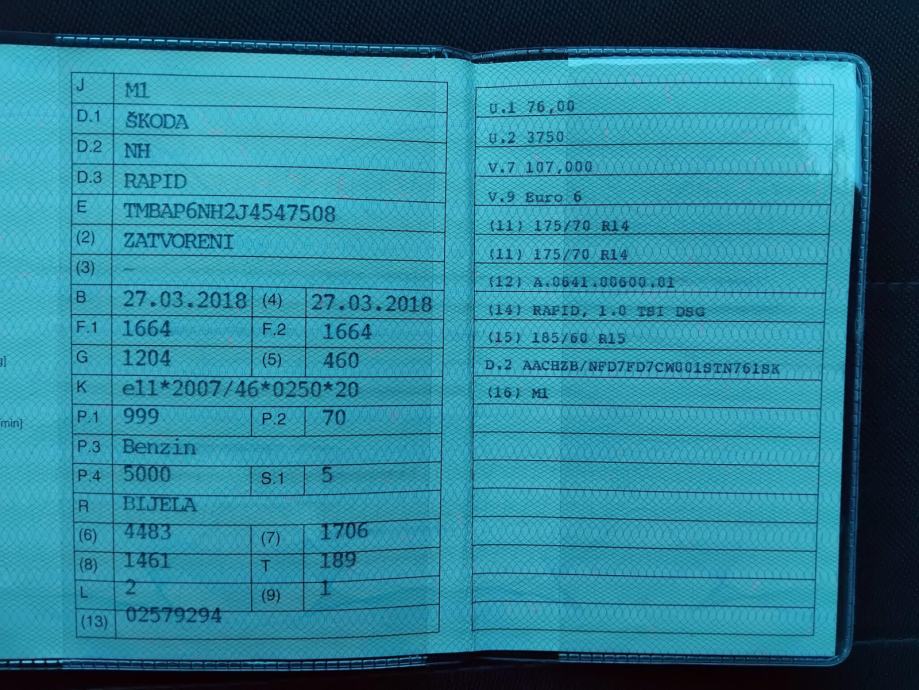 g]
min]
J M1
D.1 ŠKODA
D.2 NH
D.3 RAPID
E TMBAP6NH2J4547508
(2) ZATVORENI
(3) –
B 27.03.2018 (4) 27.03.2018
F.1 1664 F.2 1664
G 1204 (5) 460
K e11*2007/46*0250*20
P.1 999 P.2 70
P.3 Benzin
P.4 5000 S.1 5
R BIJELA
(6) 4483 (7) 1706
(8) 1461 T 189
L 2 (9) 1
(13) 02579294
U.1 76,00
U.2 3750
V.7 107,000
V.9 Euro 6
(11) 175/70 R14
(11) 175/70 R14
(12) A.0641.00600.01
(14) RAPID, 1.0 TSI DSG
(15) 185/60 R15
D.2 AACHZB/NFD7FD7CW001STN761SK
(16) M1